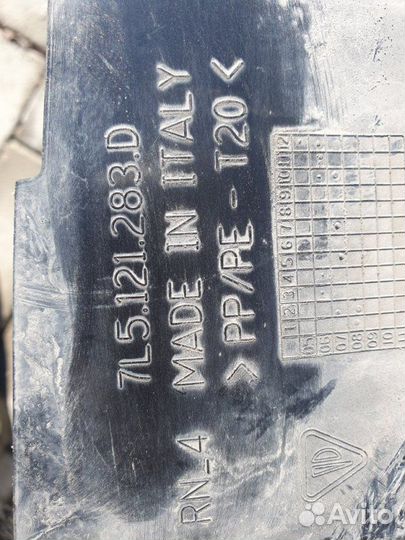 7L5.121.283.D
MADE IN ITALY
> PP/PE - T20 <
RN_4
1 2 3 4 5 6 7 8 9 10 11 12
05
06
07
08
09
10
Avito